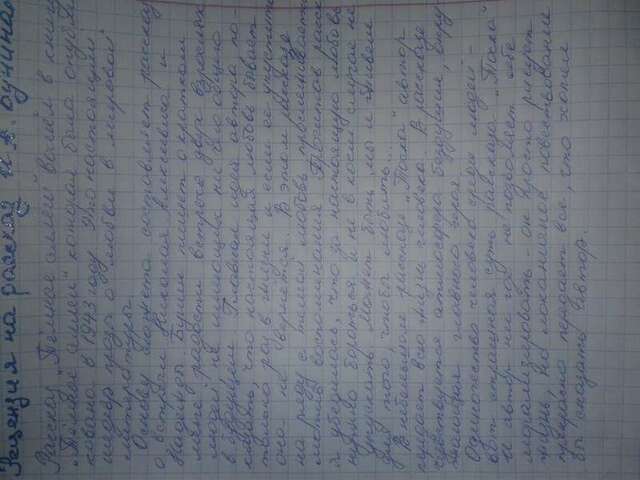 Рецензия на рассказ И. А. Бунина
Рассказ "Тёмные аллеи" вошёл в книгу
"Тёмные аллеи" которая была опубли
кована в 1943 году. Это настоящий
шедевр прозы о любви в мировой
литературы.
Основу сюжета составляет рассказ
о встречи Николая Алексеевича и
Надежды. Бунин пишет о кратком
миге радости встречи двух взрослых
людей, не имеющих ничего общего
в будущем. Главная идея автора по-
казать, что настоящая любовь бывает
только раз в жизни и если её упустить
она не вернётся. В этом рассказе
на ряду с темой любовь прослеживается
мотив воспоминания. Прочитав расск
я убедилась, что за настоящую любовь
нужно бороться и не в коем случае не
упускать. Может быть мы и живём
для того, чтобы любить...
В небольшом рассказе "Тоска" автор
передаёт всю жизнь человека. В рассказе
чувствуется атмосфера бездушия, окру-
жающая главного героя.
Одиночество человека среди людей -
вот страшная суть рассказа "Тоска"
И автор не позволяет себе
морализировать - он просто рисует
жизнь, но локаничное повествование
прекрасно передаёт всё, что хотел
бы сказать автор.